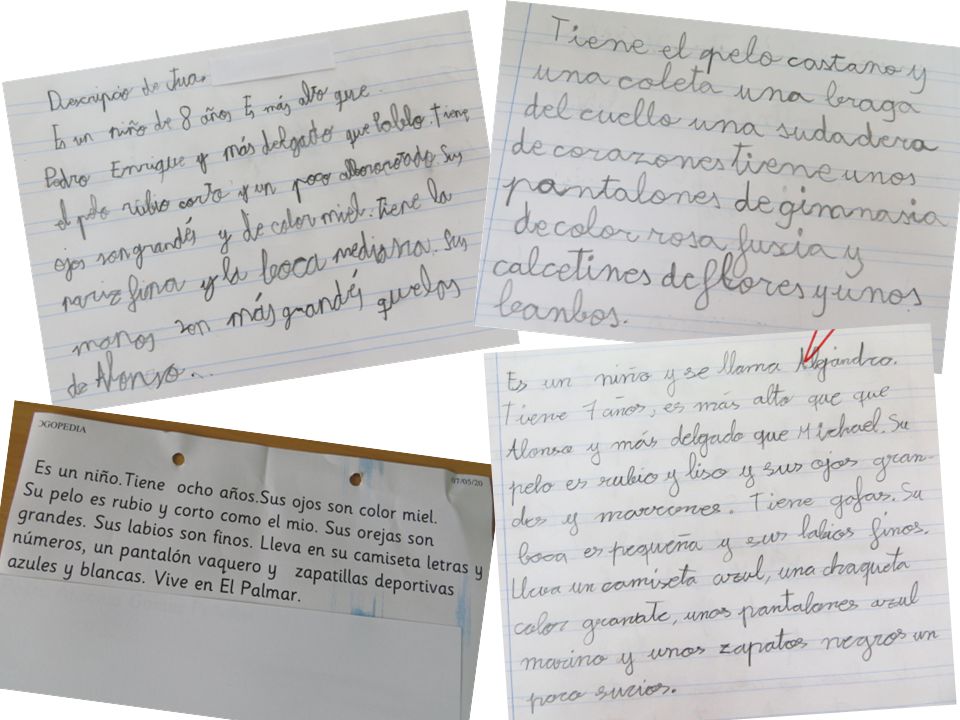 Descripcio de Jua.
Es un niño de 8 años Es más alto que
Pedro Enrrique y más delgado que Pablo. Tiene
el pelo rubio corto y un poco alborotado. Sus
ojos son grandés y de color miel. Tiene la
nariz fina y la boca mediana. Sus
manos son más grandés que los
de Alonso...
Tiene el pelo castano y
una coleta una braga
del cuello una sudadera
de corazones tiene unos
pantalones de gimnasia
de color rosa fuxia y
calcetines de flores y unos
banbos.
OGOPEDIA
07/05/20
Es un niño.Tiene ocho años.Sus ojos son color miel.
Su pelo es rubio y corto como el mio. Sus orejas son
grandes. Sus labios son finos. Lleva en su camiseta letras y
números, un pantalón vaquero y zapatillas deportivas
azules y blancas. Vive en El Palmar.
Es un niño y se llama Alejandro.
Tiene 7 años, es más alto que que
Alonso y más delgado que Michael. Su
pelo es rubio y liso y sus ojos gran-
des y marrones. Tiene gafas. Su
boca es pequeña y sus labios finos.
Lleva un camiseta azul, una chaqueta
color granate, unos pantalones azul
marino y unos zapatos negros un
poco sucios.